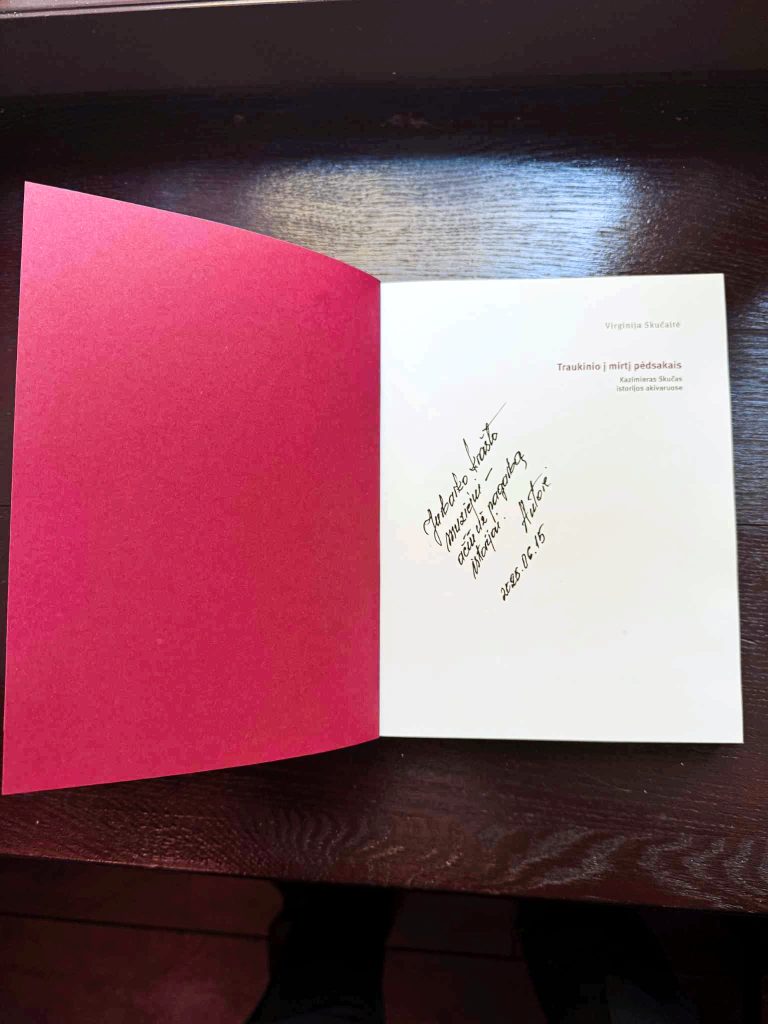 Virginija Skučaitė
Traukinio į mirtį pėdsakais
Kazimieras Skučas
istorijos akivaruose
Jurbarko krašto
muziejui –
ačiū už pagarbą
istorijai.
Autorė.
2025.06.15